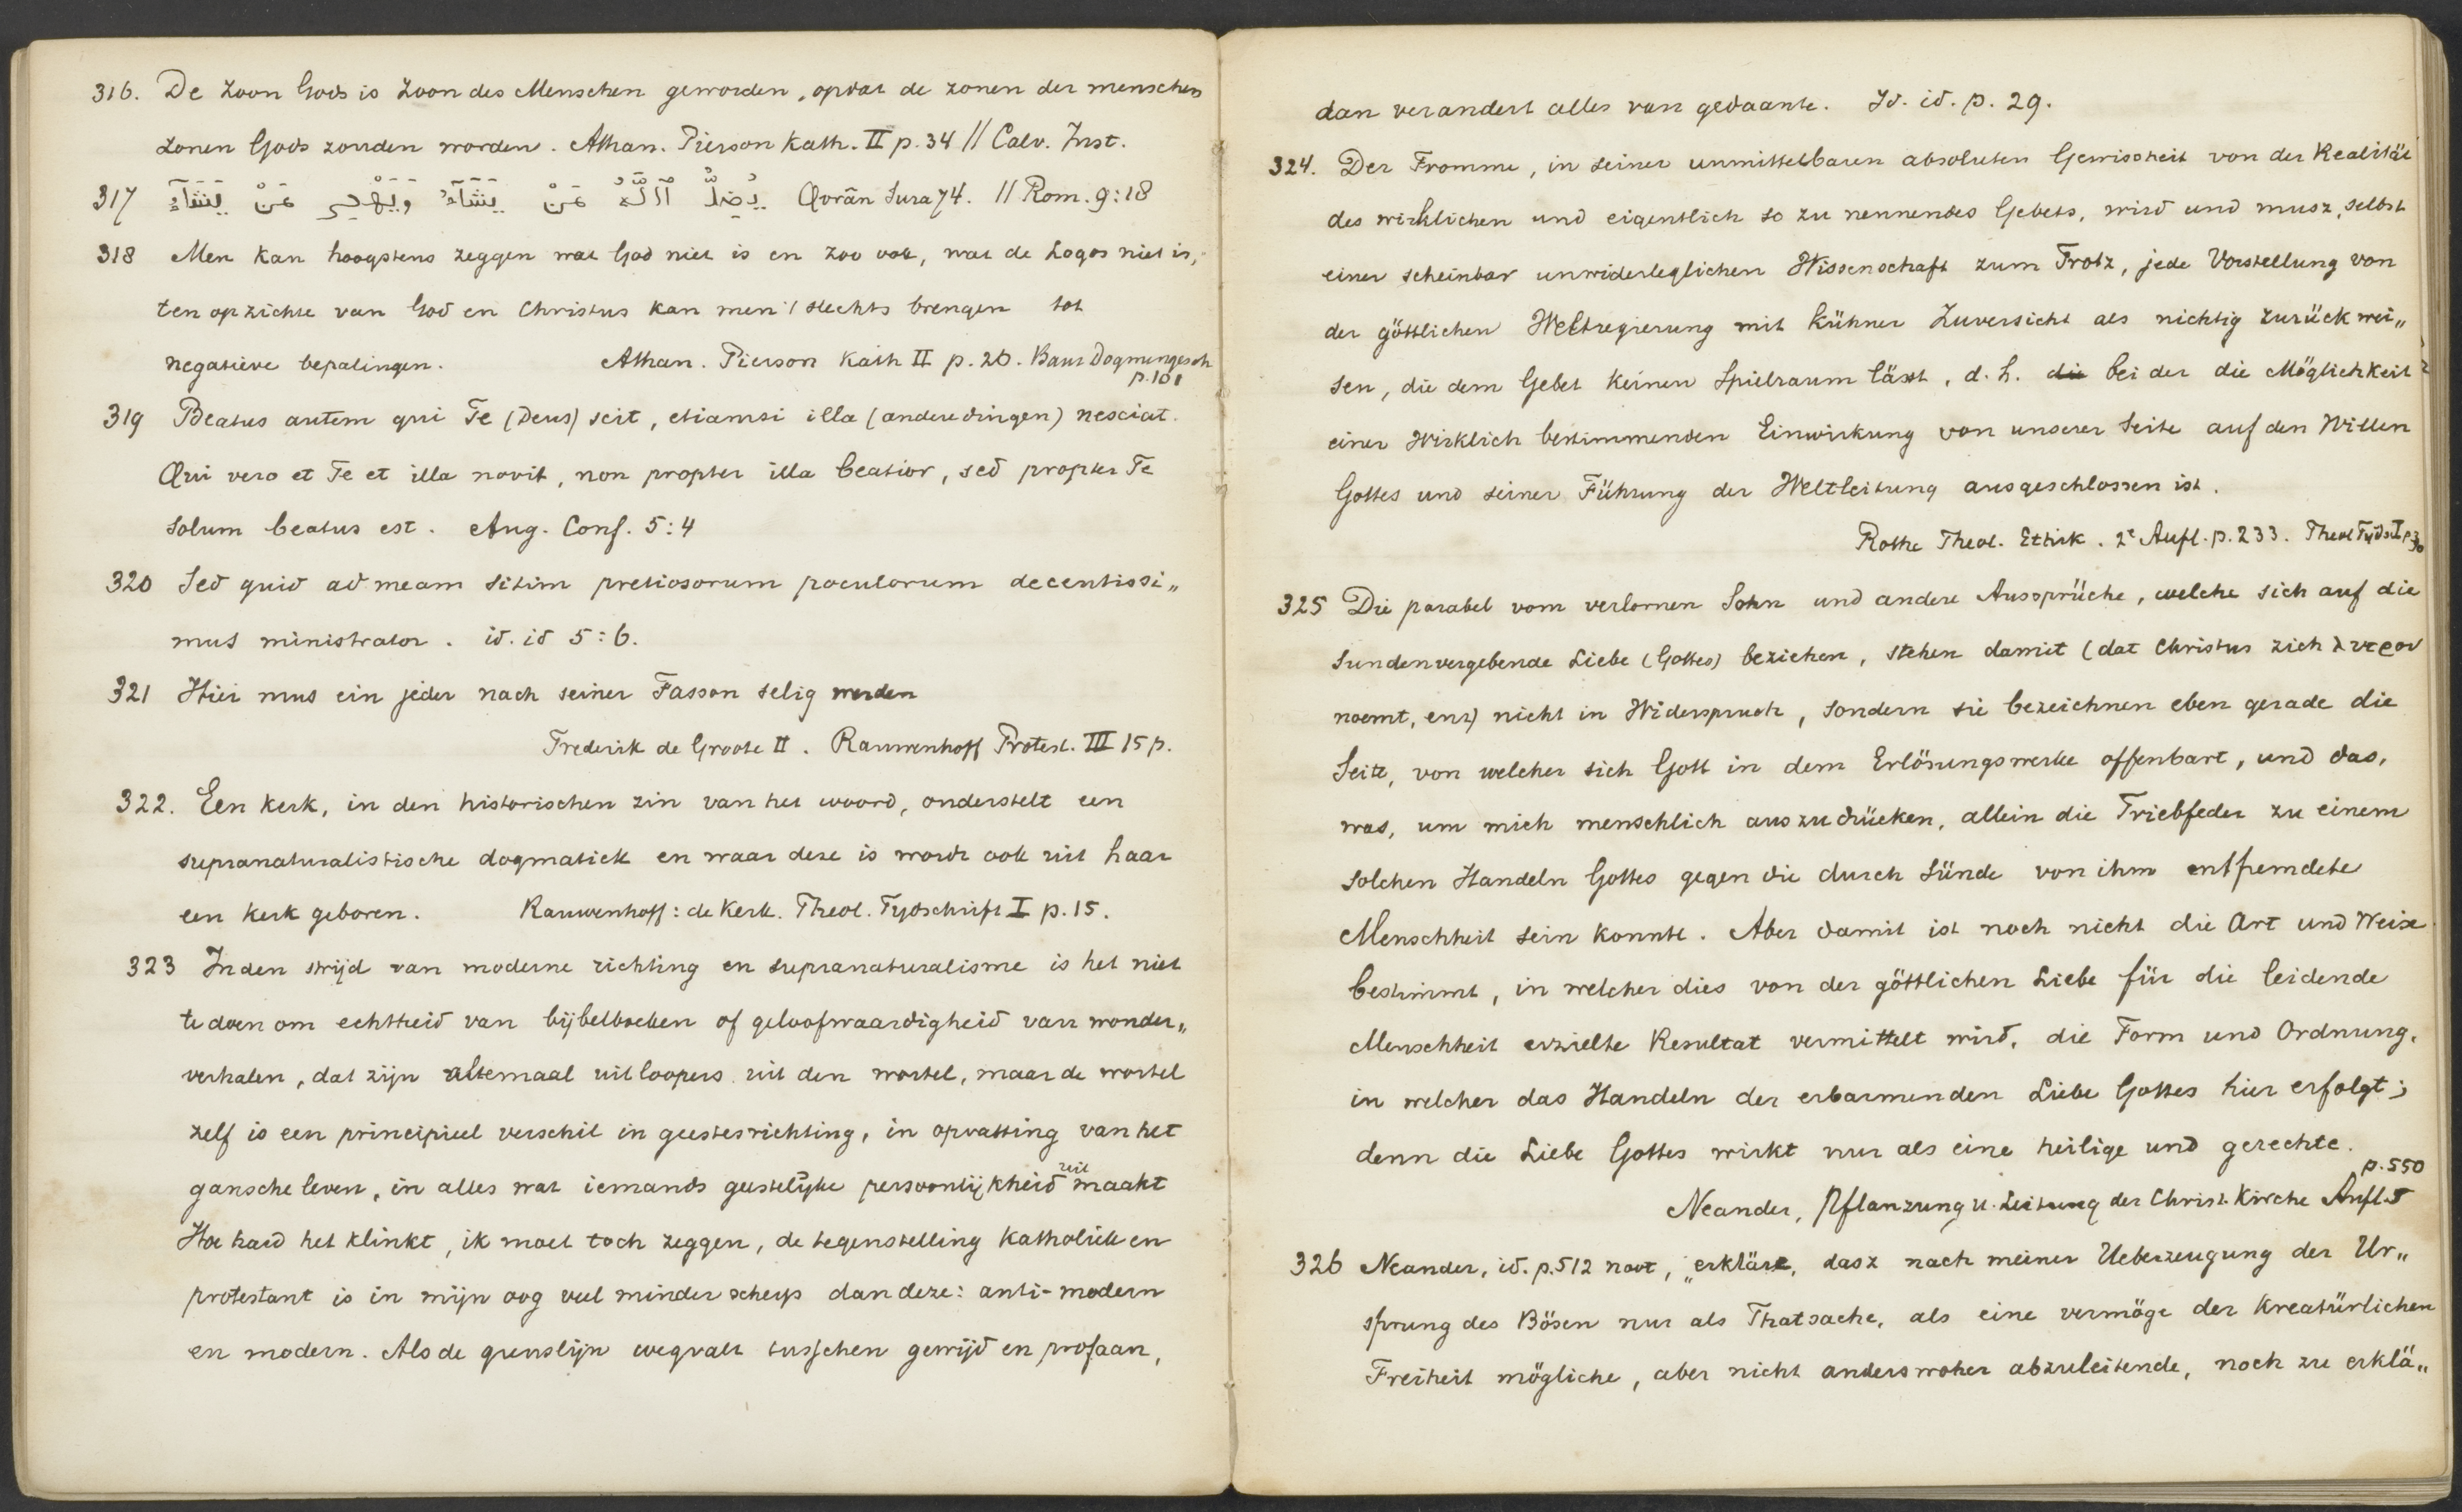 316. De Zoon Gods is Zoon des Menschen geworden, opdat de zonen der menschen
zonen Gods zouden worden. Athan. Pierson Kath. II p. 34 // Calv. Inst.
317 يُضِلُّ ٱللَّهُ مَنْ يَشَآءُ وَيَهْدِى مَنْ يَشَآءُ Qorân Sura 74. // Rom. 9:18
318 Men kan hoogstens zeggen wat God niet is en zoo ook, wat de Logos niet is;
ten opzichte van God en Christus kan men 't slechts brengen tot
negatieve bepalingen. Athan. Pierson Kath II p. 26. Baur Dogmengesch
p. 101
319 Beatus autem qui Te (Deus) scit, etiamsi illa (andere dingen) nesciat.
Qui vero et Te et illa novit, non propter illa beatior, sed propter Te
solum beatus est. Aug. Conf. 5:4
320 Sed quid ad meam sitim pretiosorum poculorum decentissi„
mus ministrator. id. id 5:6.
321 Hier mus ein jeder nach seiner Fasson selig werden
Frederik de Groote II. Rauwenhoff Protest. III 15 p.
322. Een kerk, in den historischen zin van het woord, onderstelt een
supranaturalistische dogmatiek en waar deze is wordt ook uit haar
een kerk geboren. Rauwenhoff: de Kerk. Theol. Tydschrift I p. 15.
323 In den strijd van moderne richting en supranaturalisme is het niet
te doen om echtheid van bijbelboeken of geloofwaardigheid van wonder„
verhalen, dat zijn altemaal uitloopers uit den wortel, maar de wortel
zelf is een principieel verschil in geestesrichting, in opvatting van het
gansche leven, in alles wat iemands geestelijke persoonlijkheid uit maakt
Hoe hard het klinkt, ik moet toch zeggen, de tegenstelling Katholiek en
protestant is in mijn oog veel minder scherp dan deze: anti-modern
en modern. Als de grenslijn wegvalt tusschen gewijd en profaan,
dan verandert alles van gedaante. Id. id. p. 29.
324. Der Fromme, in seiner unmittelbaren absoluten Gewissheit von der Realität
des wirklichen und eigentlich so zu nennendes Gebets, wird und musz, selbst
einer scheinbar unwiderleglichen Wissenschaft zum Trotz, jede Vorstellung von
der göttlichen Weltregierung mit kühner Zuversicht als nichtig zurückwei„
sen, die dem Gebet keinen Spielraum lässt, d. h. die bei der die Möglichkeit
einer wirklich bestimmenden Einwirkung von unserer Seite auf den Willen
Gottes und seiner Führung der Weltleitung ausgeschlossen ist.
Rothe Theol. Ethik. 2e Aufl. p. 233. Theol Tyds. I p 30
325 Die parabel vom verlornen Sohn und andere Aussprüche, welche sich auf die
sundenvergebende Liebe (Gottes) beziehen, stehen damit (dat Christus zich λυτρον
noemt, enz) nicht in Widerspruch, sondern sie bezeichnen eben gerade die
Seite, von welcher sich Gott in dem Erlösungswerke offenbart, und das,
was, um mich menschlich auszudrücken, allein die Triebfeder zu einem
solchen Handeln Gottes gegen die durch Sünde von ihm entfremdete
Menschheit sein konnte. Aber damit ist noch nicht die Art und Weise
bestimmt, in welcher dies von der göttlichen Liebe für die leidende
Menschheit erzielte Resultat vermittelt wird, die Form und Ordnung,
in welcher das Handeln der erbarmenden Liebe Gottes hier erfolgt;
denn die Liebe Gottes wirkt nur als eine heilige und gerechte.
p. 550
Neander, Pflanzung u. Leitung der Christ. Kirche Aufl. 5
326 Neander, id. p. 512 noot, „erkläre, dasz nach meiner Ueberzeugung der Ur„
sprung des Bösen nur als Thatsache, als eine vermöge der kreatürlichen
Freiheit mögliche, aber nicht anderswoher abzuleitende, noch zu erklä„